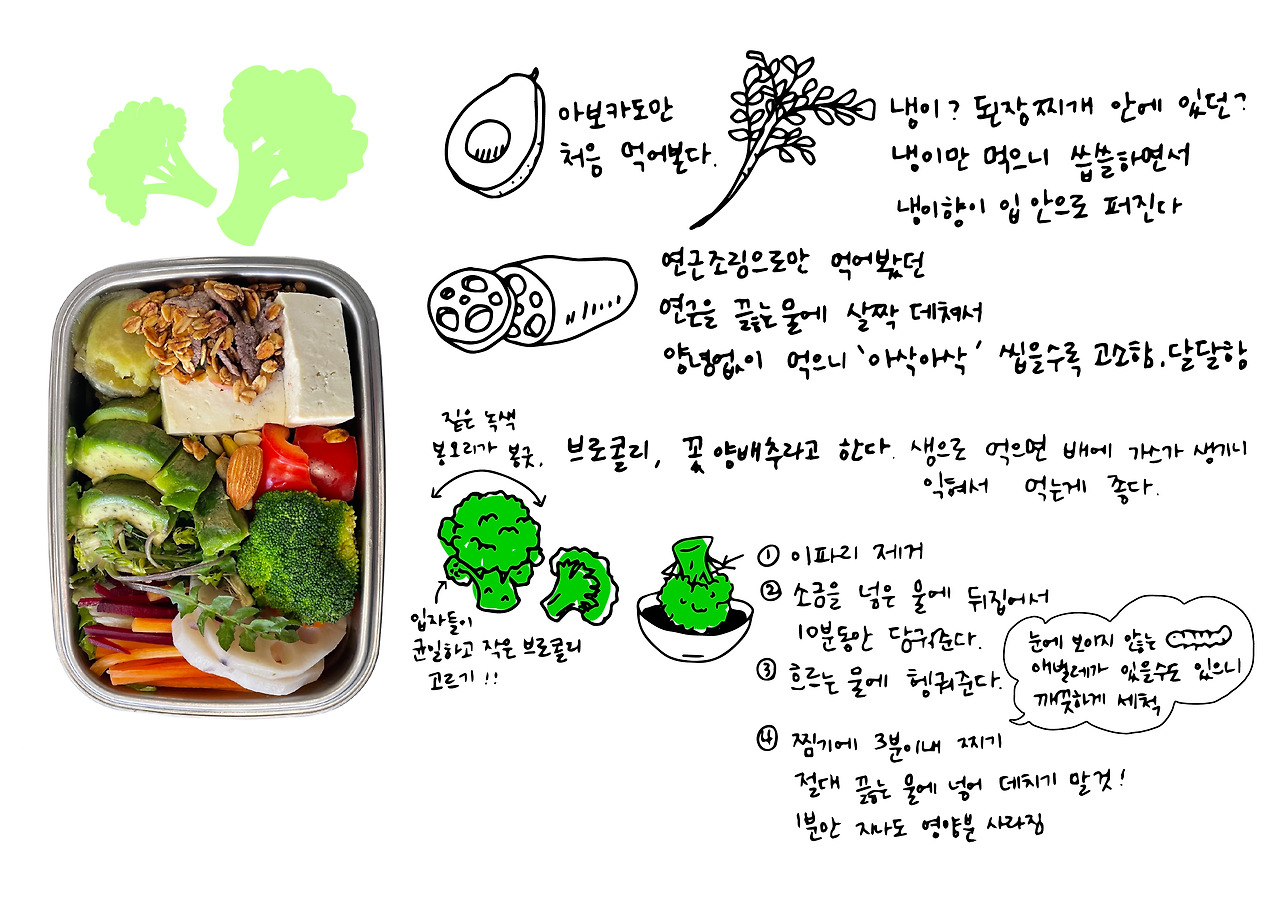 아보카도만
처음 먹어본다.
냉이? 된장찌개 안에 있던?
냉이만 먹으니 씁쓸하면서
냉이향이 입 안으로 퍼진다
연근조림으로만 먹어봤던
연근을 끓는물에 살짝 데쳐서
양념없이 먹으니 '아삭아삭' 씹을수록 고소함, 달달함
짙은 녹색
봉오리가 봉긋.
브로콜리, 꽃양배추라고 한다. 생으로 먹으면 배에 가스가 생기니
익혀서 먹는게 좋다.
입자들이
균일하고 작은 브로콜리
고르기!!
① 이파리 제거
② 소금을 넣은 물에 뒤집어서
10분동안 담궈준다.
③ 흐르는 물에 헹궈준다.
눈에 보이지 않는
애벌레가 있을수도 있으니
깨끗하게 세척
④ 찜기에 3분이내 찌기
절대 끓는 물에 넣어 데치기 말것!
1분만 지나도 영양분 사라짐